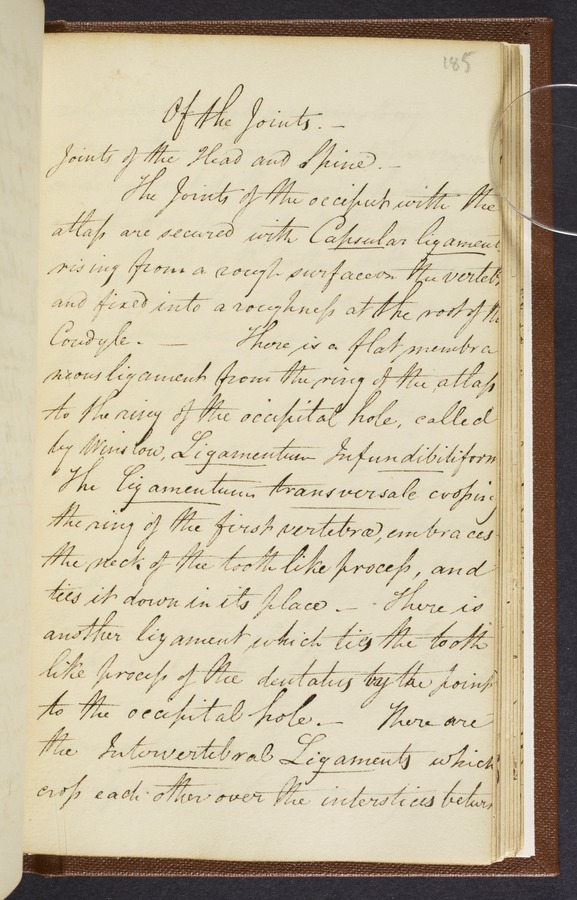 185
Of the Joints. —
Joints of the Head and Spine. —
The Joints of the occiput with the
atlaſs are secured with Capsular ligament
rising from a rough surface on the verteb
and fixed into a roughneſs at the root of th
Condyle. — There is a flat membra
neous ligament from the ring of the atlaſs
to the ring of the occipital hole, called
by Winslow, Ligamentum Infundibiliform
The Ligamentum transversale croſsing
the ring of the first vertebra, embraces
the neck of the tooth like proceſs, and
ties it down in its place. — There is
another ligament which ties the tooth
like proceſs of the dentatus by the point
to the occipital hole. — There are
the Intervertebral Ligaments which
croſs each other over the interstices betwn